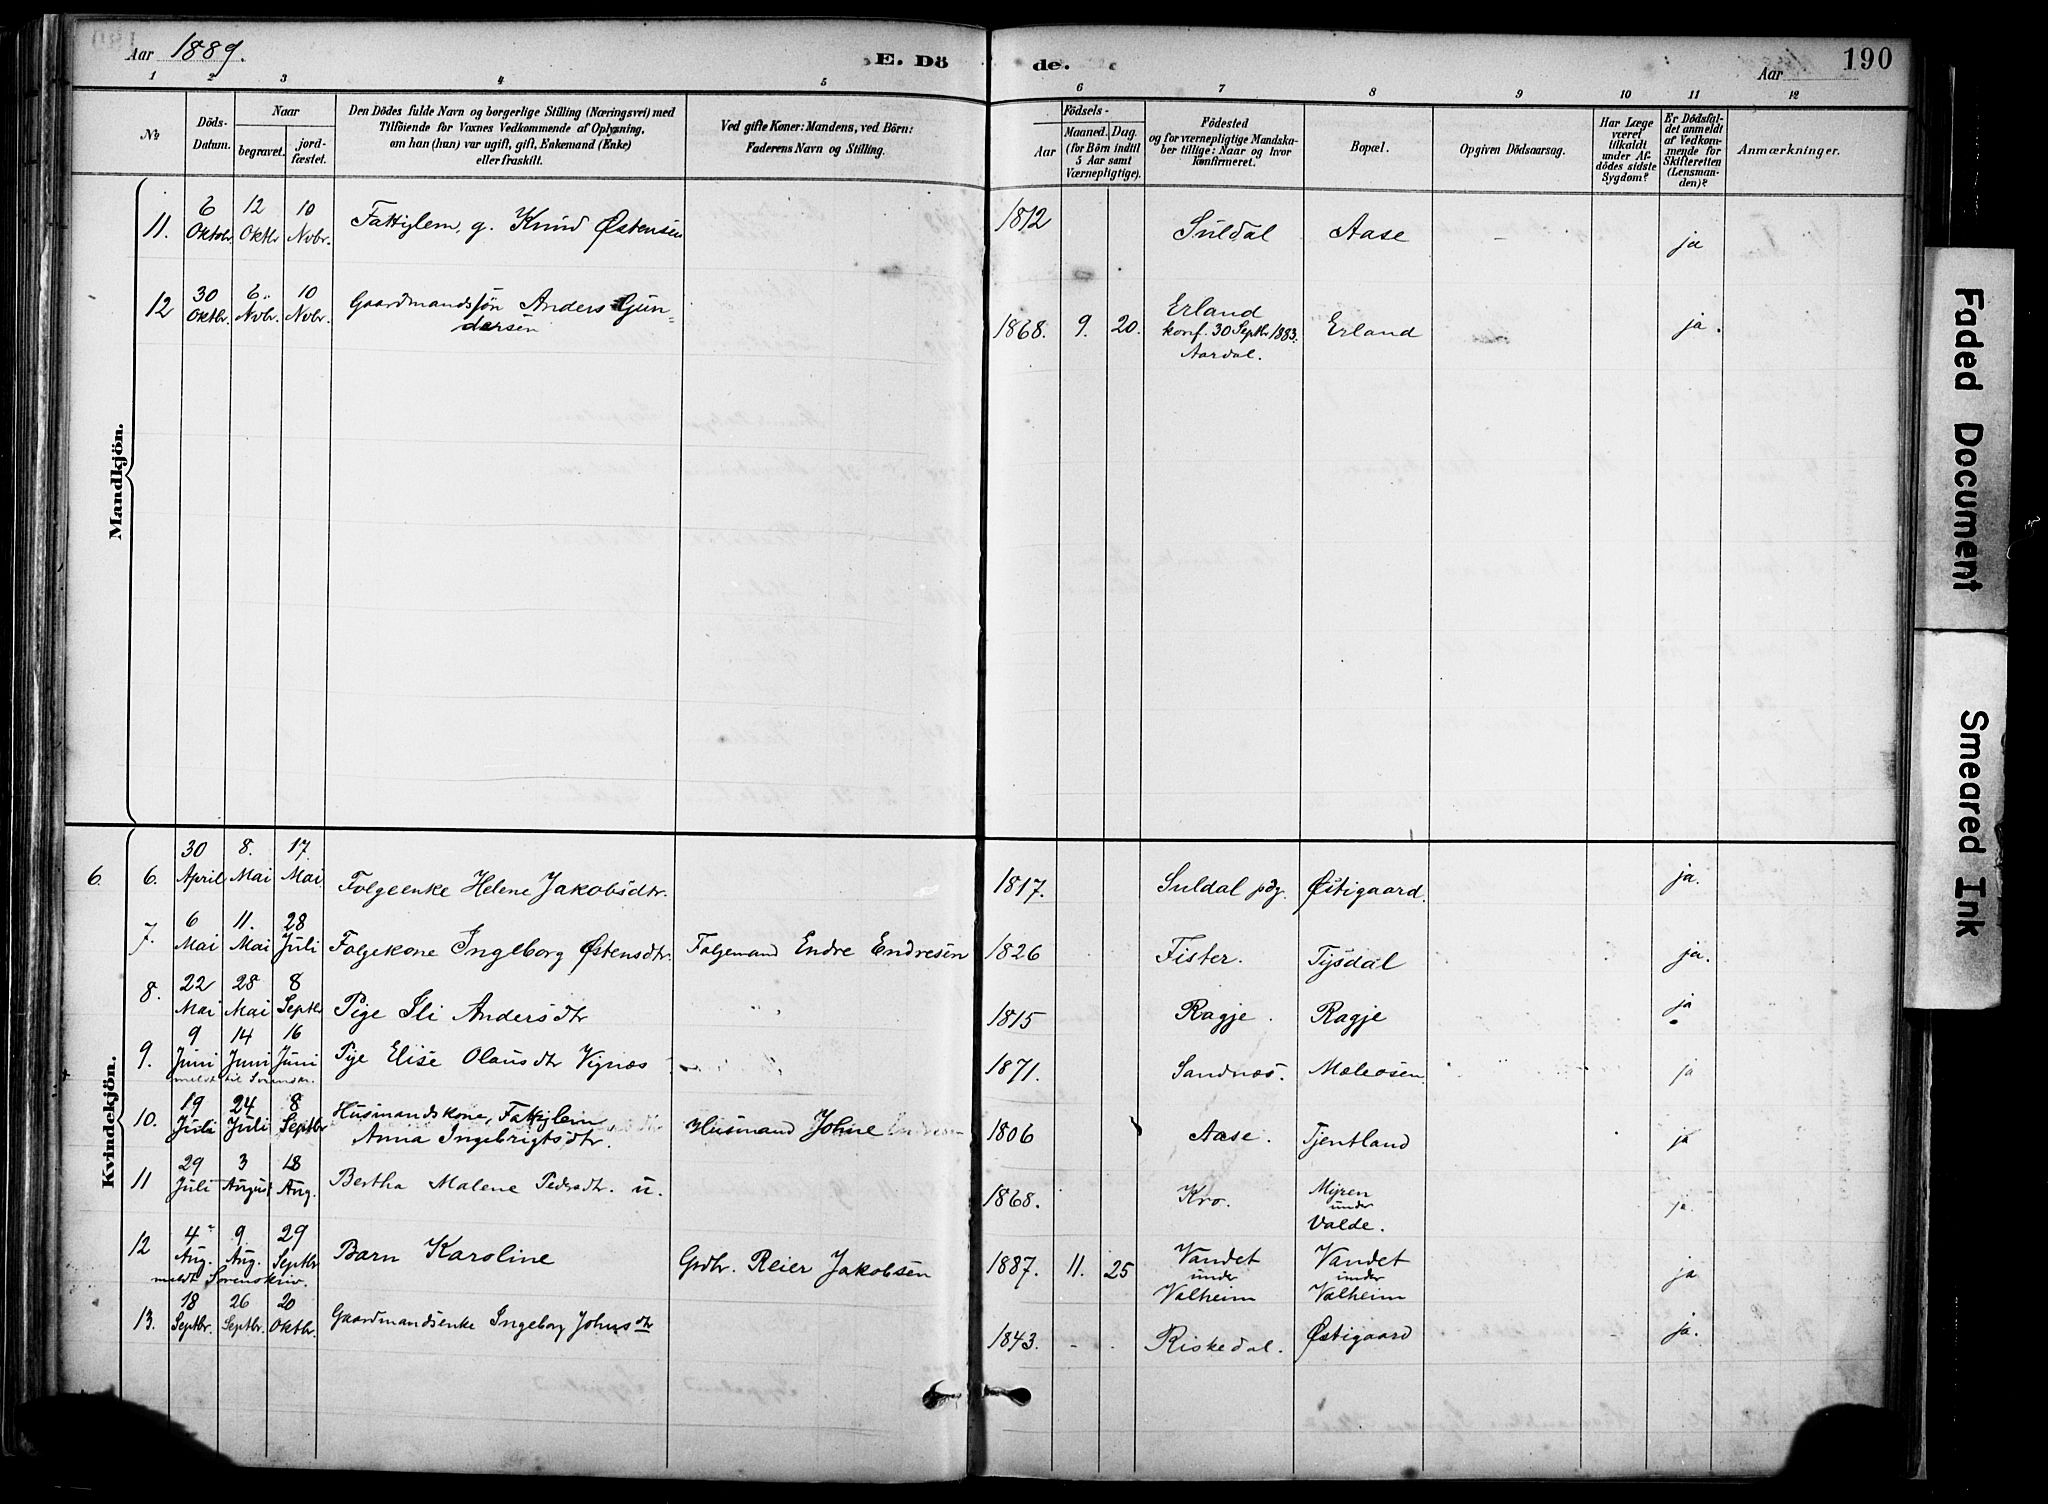 Aar 1889.
E. Dö
de.
Aar
190
1 2 3 4 5 6 7 8 9 10 11 12
№
Döds-
Datum.
Naar
begravet.
jord-
fæstet.
Den Dödes fulde Navn og borgerlige Stilling (Næringsvei) med
Tilföiende for Voxnes Vedkommende af Oplysning,
om han (hun) var ugift, gift, Enkemand (Enke)
eller fraskilt.
Ved gifte Koner: Mandens, ved Börn:
Faderens Navn og Stilling.
Födsels-
Aar
Maaned.
Dag.
(for Börn indtil
5 Aar samt
Værnepligtige).
Födested
og for værnepligtige Mandska-
ber tillige: Naar og hvor
konfirmeret.
Bopæl.
Opgiven Dödsaarsag.
Har Læge
været
tilkaldt
under Af-
dödes sidste
Sygdom?
Er Dödsfal-
det anmeldt
af Vedkom-
mende for
Skifteretten
(Lensman-
den)?
Anmærkninger.
Mandkjön.
11. 6 Oktbr. 12 Oktbr 10 Nvbr. Fattiglem, g. Knud Østensen 1812 Suldal Aase - ja
12 30 Oktbr. 6. Nvbr. 10 Nvbr. Gaardmandssøn Anders Gun-
dersen 1868. 9. 20. Erland
konf. 30 Septbr 1883.
Aardal. Erland ja.
Kvindekjön.
6. 6. 30 April 8. Mai 17. Mai Folgeenke Helene Jakobsdtr. 1817. Suldal pdg. Østigaard. ja.
7. 6 Mai 11. Mai 28 Juli Folgekone Ingeborg Østensdtr. Folgemand Endre Endresen 1826 Fister. Tysdal ja.
8. 22 Mai 28 Mai 8 Septbr Pige Sli Andersdtr " 1815 Ragje. Ragje ja
9. 9 Juni 14 Juni 16 Juni Pige Elise Olausdtr Vignæs 1871. Sandnæs. Mæleosen ja
meldt til Sorenskr.
10. 19 Juli 24 Juli 8 Septbr Husmandskone, Fattiglem
Anna Ingebrigtsdtr. Husmand Johne 1806 Aase. Tjentland ja
11 29 Juli 3 August 18 Aug. Bertha Malene Pedersdtr. u. 1868. Kro. Myren
under
Valde. ja.
12 4 Aug. 9 Aug. 29 Septbr Barn Karoline Grdbr. Reier Jakobsen 1887. 11. 25 Vandet
under
Valheim Vandet
under
Valheim ja
meldt Sorenskriv.
13. 18 Septbr. 26 Septbr. 20 Oktbr. Gaardmandsenke Ingeborg Johnsdtr 1843. - . Riskedal. Østigaard ja.
Faded Document
Smeared Ink